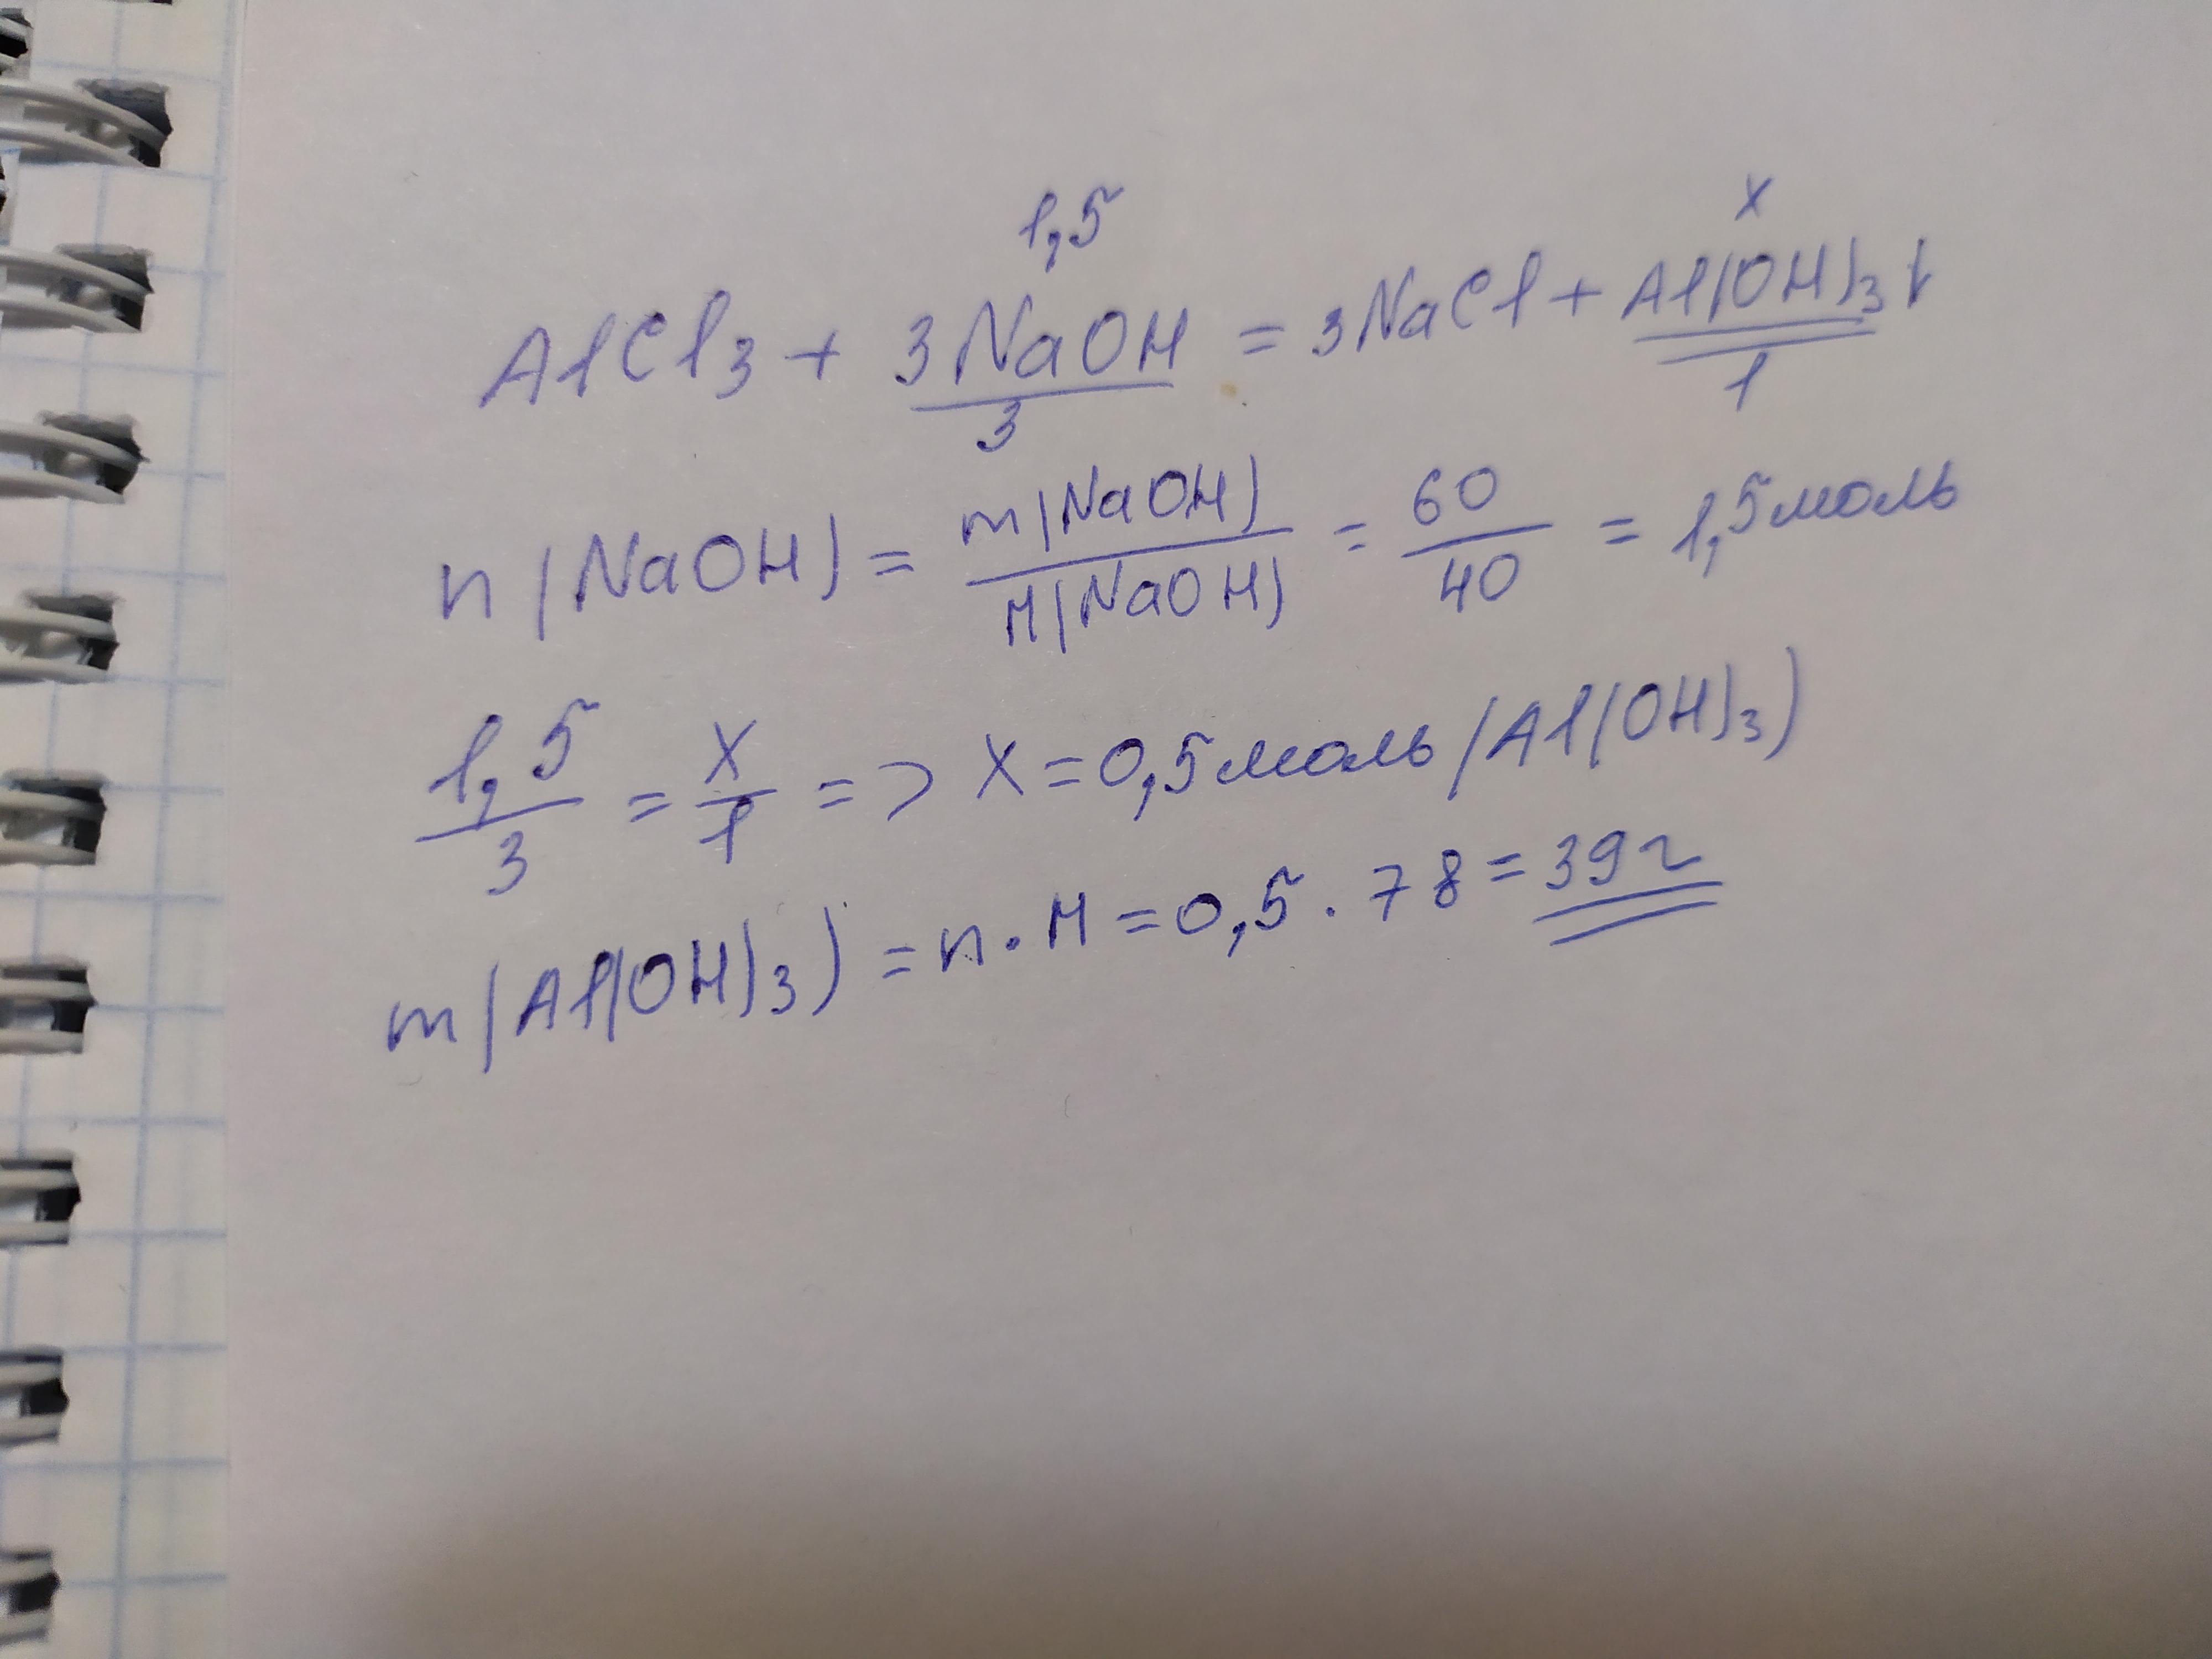 1,5 x
AlCl3 + 3NaOH = 3NaCl + Al(OH)3↓
3 1
n(NaOH) = m(NaOH)/M(NaOH) = 60/40 = 1,5 моль
1,5/3 = x/1 => x = 0,5 моль (Al(OH)3)
m(Al(OH)3) = n · M = 0,5 · 78 = 39 г